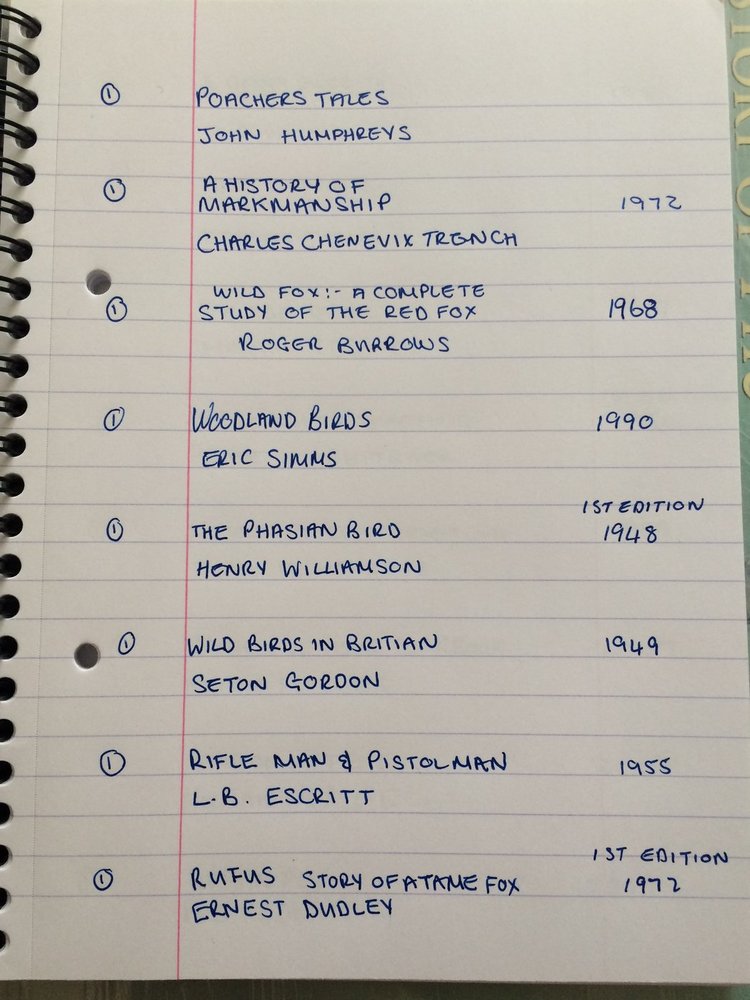 ① POACHERS TALES
JOHN HUMPHREYS
① A HISTORY OF
MARKMANSHIP 1972
CHARLES CHENEVIX TRENCH
WILD FOX:- A COMPLETE
① STUDY OF THE RED FOX 1968
ROGER BURROWS
① WOODLAND BIRDS 1990
ERIC SIMMS
1ST EDITION
① THE PHASIAN BIRD 1948
HENRY WILLIAMSON
① WILD BIRDS IN BRITIAN 1949
SETON GORDON
① RIFLE MAN & PISTOLMAN 1955
L.B. ESCRITT
1ST EDITION
① RUFUS STORY OF A TAME FOX 1972
ERNEST DUDLEY